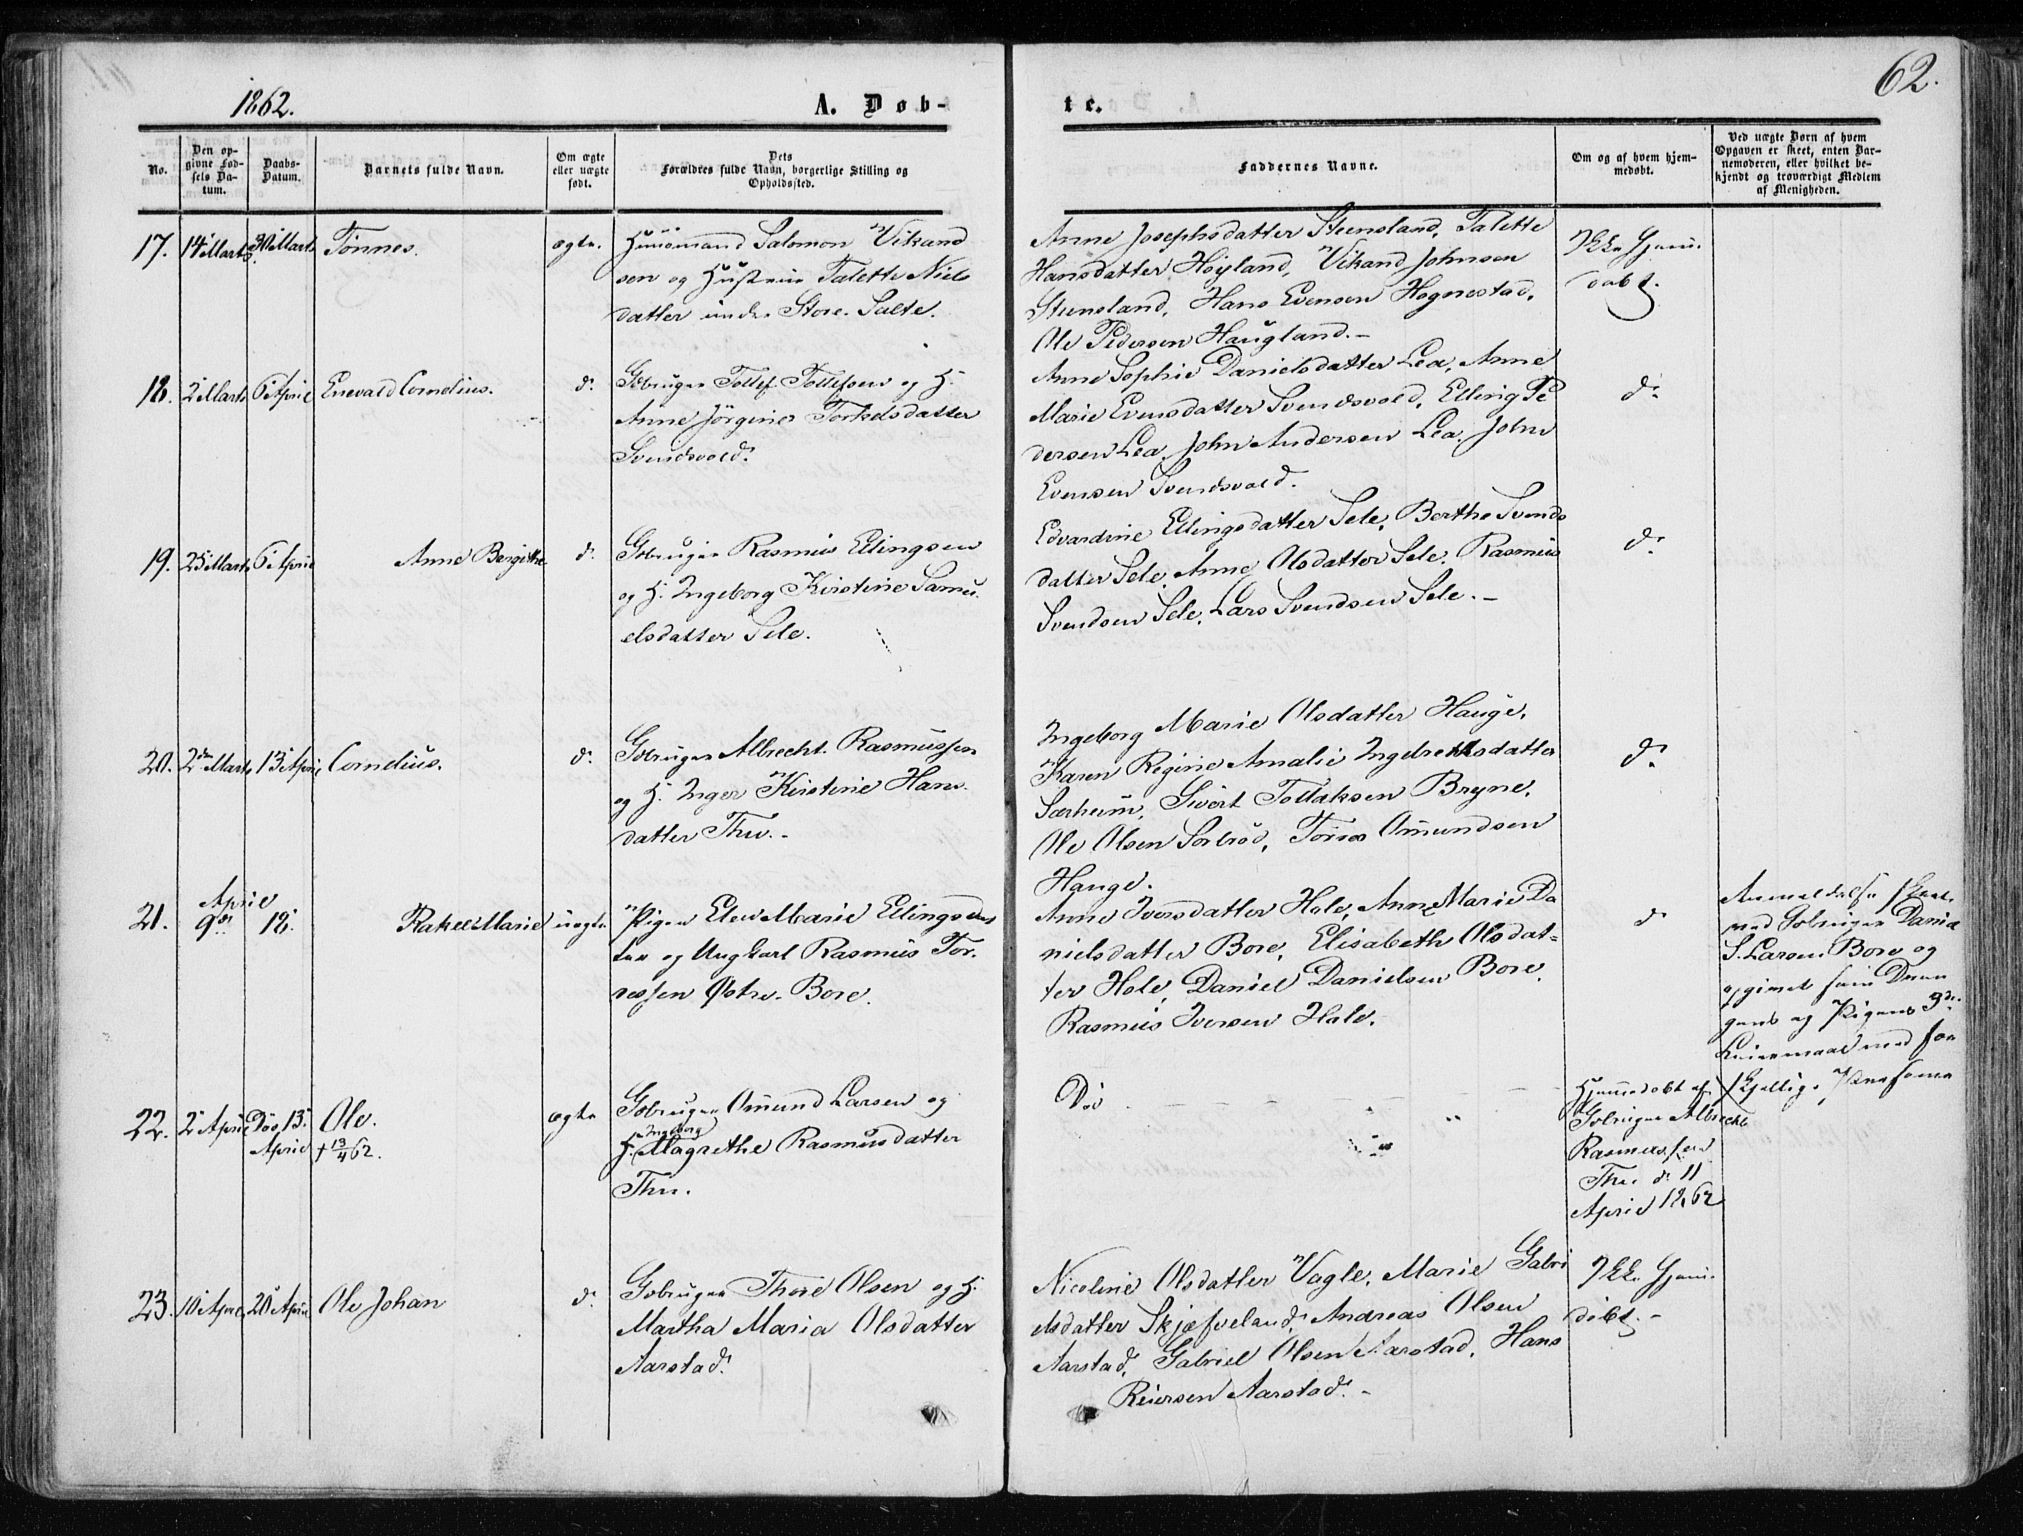 1862.
A. Døb-
te.
62.
No.
Den op-
givne Fød-
sels Da-
tum.
Daabs-
Datum.
Barnets fulde Navn.
Om ægte
eller uægte
født.
Dets
Forældres fulde Navn, borgerlige Stilling og
Opholdssted.
Faddernes Navne.
Om og af hvem hjem-
medøbt.
Ved uægte Børn af hvem
Opgaven er skeet, enten Bar-
nemoderen, eller hvilket be-
kjendt og troværdigt Medlem
af Menigheden.
17. 14 Marts 30 Marts Tønnes. ægte. Huusmand Salomon Vikand
sen og Hustrue Talette Niels
datter under Store Salte.
Anne Josephsdatter Steensland, Talette
Hansdatter Høyland, Vikand Johnsen
Steensland, Hans Evensen Hognestad,
Ole Pedersen Haugland.-
Ikke Hjem.
døbt.
18. 2 Marts 6 April Enevald Cornelius. do Gbruger Tollef Tollefsen og H.
Anne Jørgine Torkelsdatter
Svendsvold.
Anne Sophie Danielsdatter Lea, Anne
Marie Evensdatter Svendsvold, Elling Pe
dersen Lea, John Andersen Lea, John
Evensen Svendsvold.
do
19. 25 Marts 6 April Anne Bergitte do Gbruger Rasmus Ellingsen
og H. Ingeborg Kirstine Samu
elsdatter Sele.
Edvardine Ellingsdatter Sele, Berthe Svends
datter Sele, Anne Olsdatter Sele, Rasmus
Svendsen Sele, Lars Svendsen Sele.-
do
20. 2den Marts 13 April Cornelius. do Gbruger Albrecht Rasmussen
og H. Inger Kirstine Hans
datter Thu.-
Ingeborg Marie Olsdatter Hauge,
Karen Regine Amalie Ingebretsdatter
Særheim, Sivert Tollaksen Bryne,
Ole Olsen Sorbrød, Tørres Omundsen
Hauge.
do
21. April
9de 18. Rakel Marie uægte Pigen Elen Marie Ellingsdat
ter og Ungkarl Rasmus Tor.
resen Østre-Bore.
Anne Iversdatter Hole, Anne Marie Da
nielsdatter Bore, Elisabeth Olsdat=
ter Hole, Daniel Danielsen Bore,
Rasmus Iversen Hole.
do
Anmeldelse skeet
ved Gbruger Daniel
S. Larsen Bore og
opgivet som Dren
gens og Pigens 3de
Leiermaal med for
skjellige Personer
22. 2 April Død 13.
April
Ole.
† 13/4 62.
ægte Gbruger Omund Larsen og
H. Ingeborg Magrethe Rasmusdatter
Thu.
Død
Hjemmedøbt af
Gbruger Albrecht
Rasmussen
Thu d. 11
April 1862
23. 10 April 20 April Ole Johan do Gbruger Thore Olsen og H.
Martha Maria Olsdatter
Aarstad.
Nicoline Olsdatter Vagle, Marie Gabri
elsdatter Skjæfveland, Andreas Olsen
Aarstad, Gabriel Olsen Aarstad, Hans
Reiersen Aarstad.-
Ikke Hjem.
døbt.-